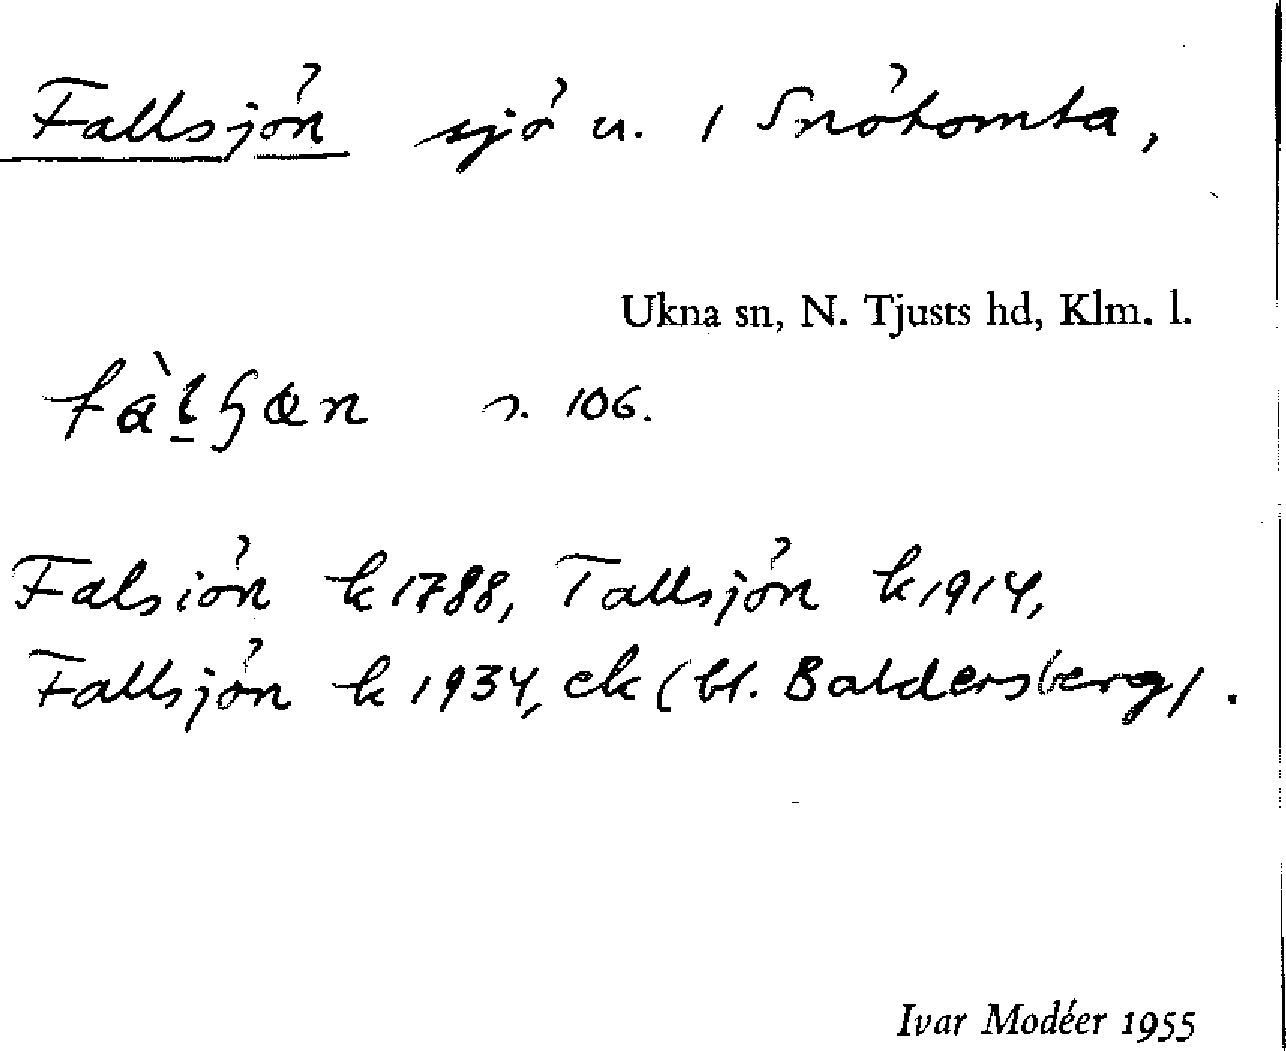 Fallsjön sjö u. 1 Snötomta,
Ukna sn, N. Tjusts hd, Klm. l.
s. 106.
Falsiön k 1788, Tallsjön k 1914,
Fallsjön k 1934, ek (bl. Baldersberg).
Ivar Modéer 1955